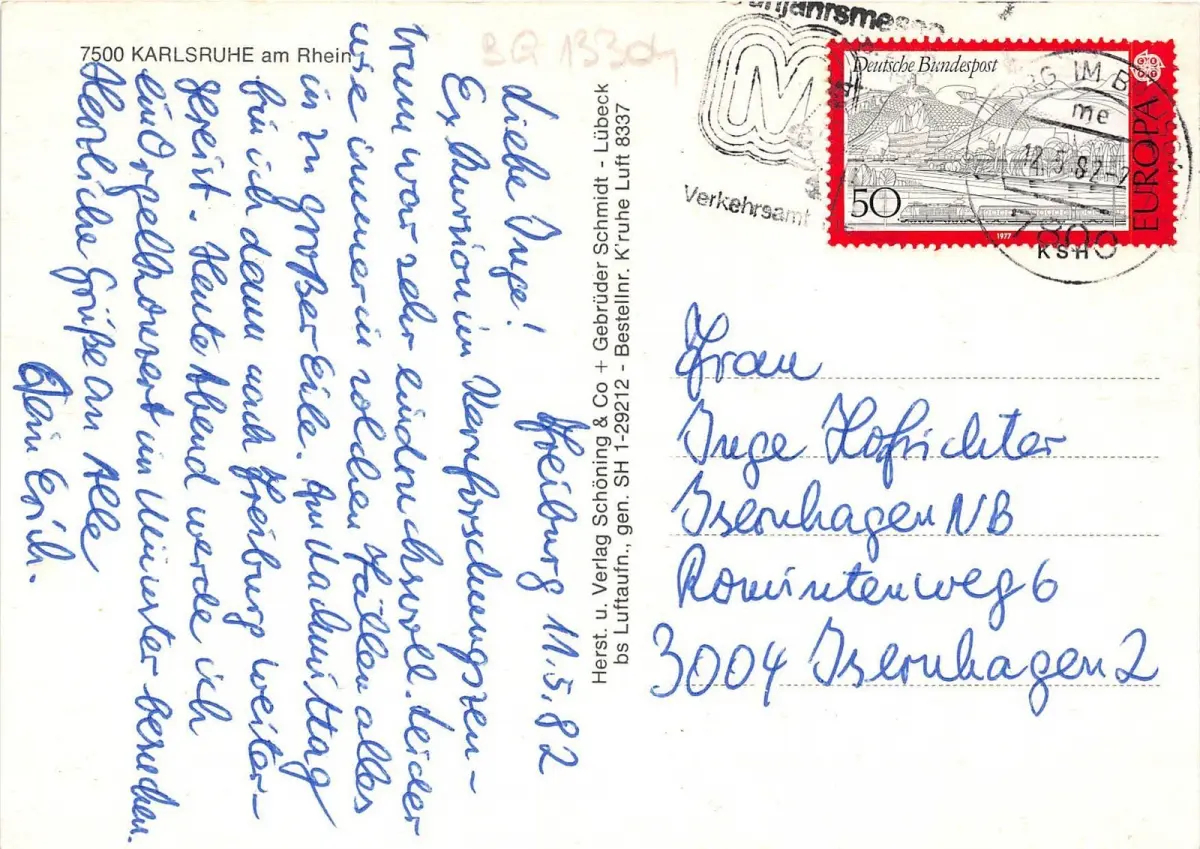 7500 KARLSRUHE am Rhein
BQ 133
Freiburg 11.5.82
Liebe Inge!
Exkursion im Kernforschungszen-
trum war sehr eindrucksvoll. Leider
wie immer in solchen Fällen alles
in zu großer Eile. Am Nachmittag
bin ich dann nach Freiburg weiter-
gereist. Heute Abend werde ich
ein Orgelkonzert im Münster besuchen.
Herzliche Grüße an Alle
Dein Erich.
Herst. u. Verlag Schöning & Co + Gebrüder Schmidt - Lübeck
bs Luftaufn., gen. SH 1-29212 - Bestellnr. K'ruhe Luft 8337
M
Verkehrsamt
Deutsche Bundespost
EUROPA
50
1977
G IM B
me
12.5.82-
7800
KSH
Frau
Inge Hofrichter
Isernhagen NB
Romintenweg 6
3004 Isernhagen 2